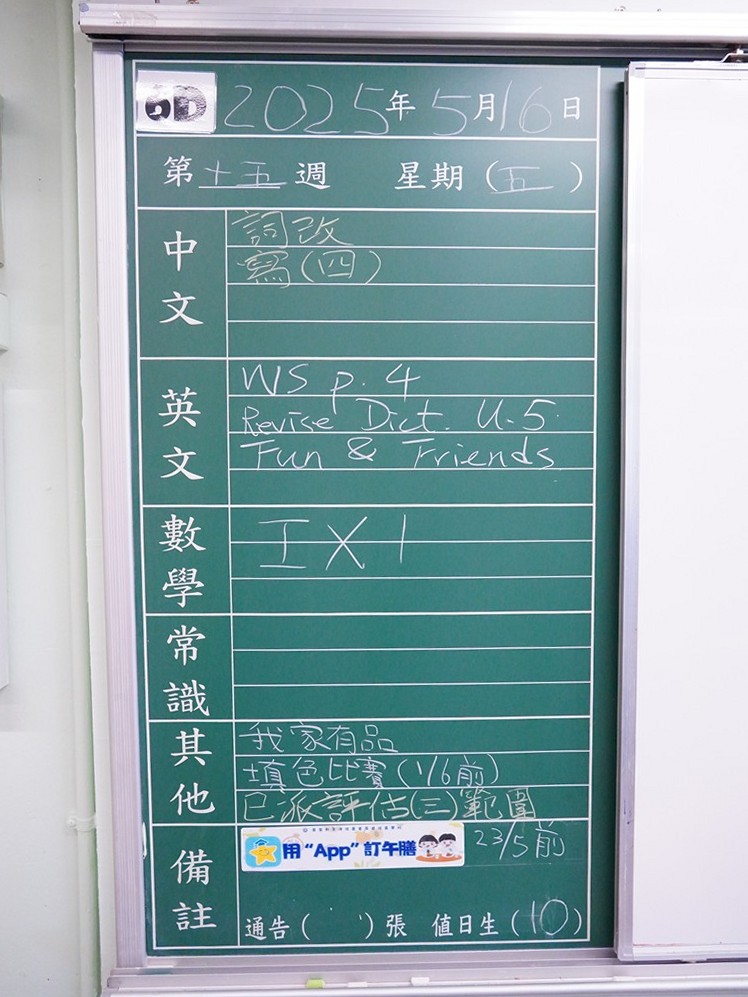 6D 2025年5月16日
第十五週 星期(五)
中文
詞改
寫(四)
英文
WS p. 4
Revise Dict. U.5
Fun & Friends
數學
工 X 1
常識
其他
我家有品
填色比賽(1/6前)
已派評估(三)範圍
備註
用“App”訂午膳 23/5前
通告( )張 值日生(10)